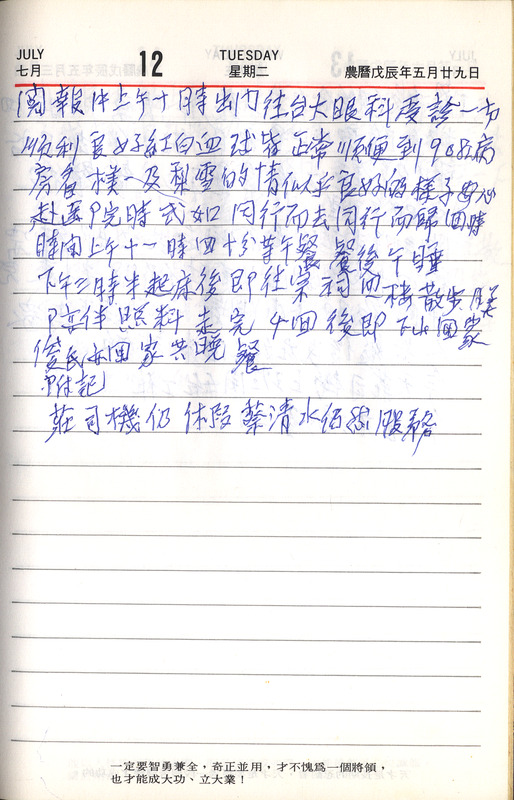 JULY
七月
12
TUESDAY
星期二
農曆戊辰年五月廿九日
閱報後上午十時出門往台大眼科應診一切
順利良好紅白血球皆正常順便到908病
房看樸一及梨雪的情似乎良好的樣子
赴 院時 如同行而去同行而歸回
時閱上午十一時四十分等午餐餐後午睡
下午三時半起床後即往 四樓散步
伴照料走完4回後即下山回家
俊民 回家共晚餐
附記
莊司機仍休假蔡清水 服務
一定要智勇兼全，奇正並用，才不愧爲一個將領，
也才能成大功、立大業！